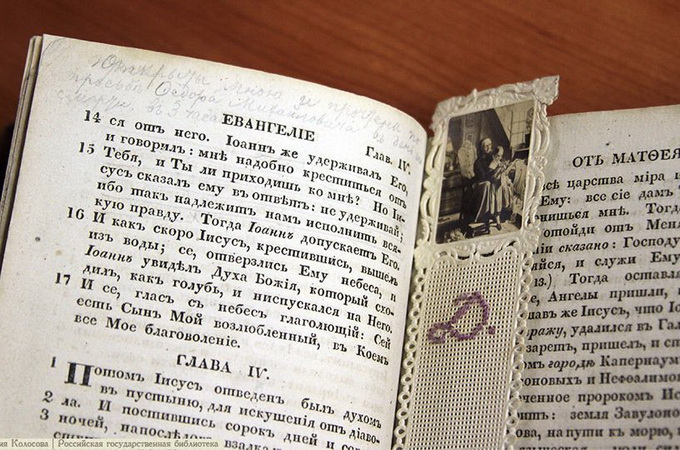 мною и прочтены по
просьбѣ Ѳедора Михайловича въ день
смерти, въ 3 часа
ЕВАНГЕЛІЕ Глав. IV.
14 ся отъ него. Іоаннъ же удерживалъ Его,
и говорилъ: мнѣ надобно креститься отъ
15 Тебя, и Ты ли приходишь ко мнѣ? Но Іи-
сусъ сказалъ ему въ отвѣтъ: не удерживай;
ибо такъ надлежитъ намъ исполнить вся-
кую правду. Тогда Іоаннъ допускаетъ Его.
16 И какъ скоро Іисусъ, крестившись, вышелъ
изъ воды; се, отверзлись Ему небеса, и
Іоаннъ увидѣлъ Духа Божія, который схо-
дилъ, какъ голубь, и ниспускался на Него.
17 И се, гласъ съ небесъ глаголющій: Сей
есть Сынъ Мой возлюбленный, въ Коемъ
все Мое благоволеніе.
ГЛАВА IV.
1 Потомъ Іисусъ отведенъ былъ духомъ
въ пустыню, для искушенія отъ діаво-
2 ла. И постившись сорокъ дней и
3 ночей, напослѣдокъ взалкалъ.
ОТЪ МАТѲЕЯ
всѣ царства міра и
Ему: все сіе дамъ Т
нишься мнѣ. Тогда
отойди отъ Меня
сказано: Господу
яйся, и служи Ему
13.) Тогда оставля
Ангелы пришли, и
же Іисусъ, что Іо
ражу, удалился въ Гал
заретъ, пришелъ, и сп
омъ городѣ Капернаумѣ
оновыхъ и Нефѳалимов
ченное пророкомъ Ис
итъ: земля Завулоно
на пути къ морю, по
D.
ия Колосова | Российская государственная библиотека